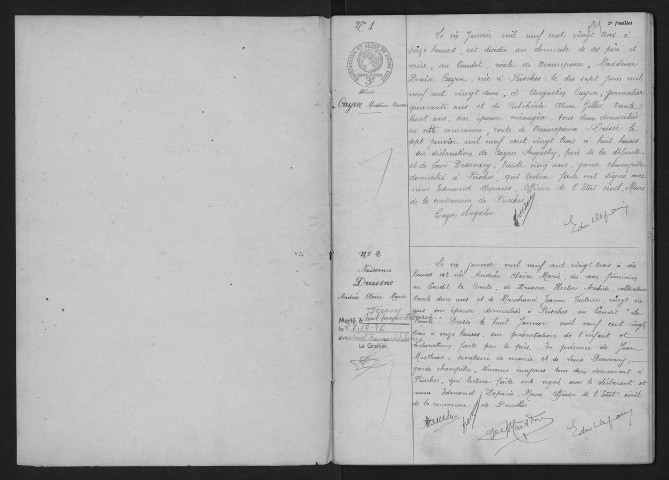 2e feuillet
No 1
Décès
Cayen Madeleine Denise
Le six Janvier mil neuf cent vingt trois à
heures, est décédée au domicile de ses père et
mère, au lieudit, route de Beaurepaire, Madeleine
Denise Cayen, née à Prisches le dix sept juin mil
neuf cent vingt deux, d' Augustin Cayen, journalier
quarante ans et de Gilles trente
huit ans, son épouse ménagère, tous deux domiciliés
en cette commune, route de Beaurepaire. Dressé le
sept janvier mil neuf cent vingt trois à huit heures
sur déclaration de Cayen Augustin, père de la défunte
et de Louis trente cinq ans, garde champêtre
domicilié à Prisches, qui lecture faite ont signé avec
nous Edmond Deparis, Officier de l'Etat civil, Maire
de la commune de Prisches.
Cayen Augustin
No 2
Naissance
Druesne
Andrée Claire Marie
Marié à
le
Le Greffier,
Le six janvier mil neuf cent vingt trois à six
heures est née Andrée Claire Marie, du sexe féminin
au lieudit la Comté, de Druesne Hector cultivateur
trente deux ans et de Marchand Jeanne vingt six
ans son épouse domiciliés à Prisches, au lieudit "La
Comté". Dressé le huit Janvier mil neuf cent vingt
trois à onze heures, sur présentation de l'enfant et
déclaration faite par le père. En présence de Jean
secrétaire de mairie et de Louis
garde champêtre, témoins majeurs tous deux demeurant à
Prisches, qui lecture faite ont signé avec le déclarant et
nous Edmond Deparis Maire Officier de l'Etat civil
de la commune de Prisches